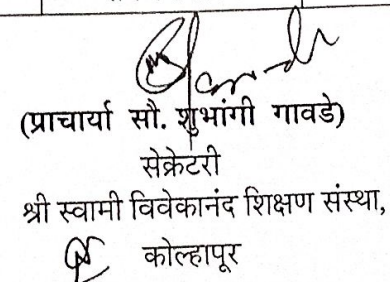 (प्राचार्या सौ. शुभांगी गावडे)
सेक्रेटरी
श्री स्वामी विवेकानंद शिक्षण संस्था,
कोल्हापूर